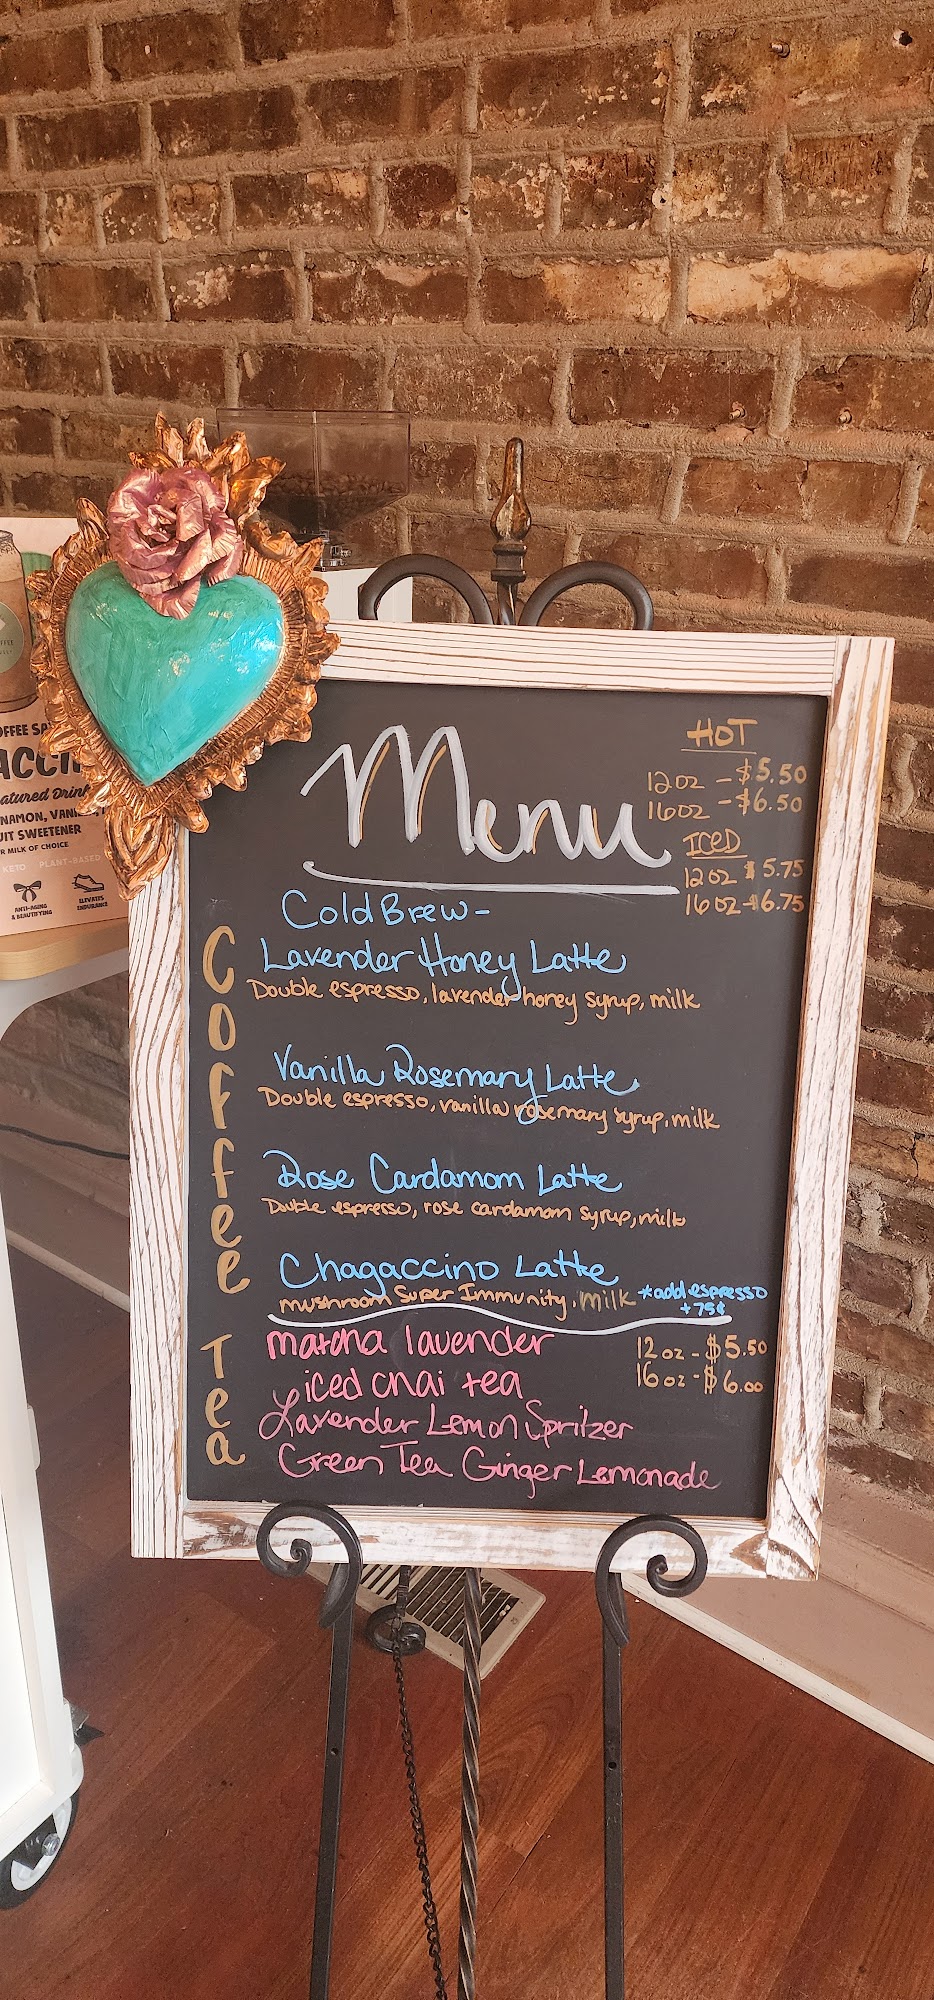 Menu
HOT
12oz - $5.50
16oz - $6.50
ICED
12oz $5.75
16oz - $6.75
Coffee
Cold Brew -
Lavender Honey Latte
Double espresso, lavender honey syrup, milk
Vanilla Rosemary Latte
Double espresso, vanilla rosemary syrup, milk
Rose Cardamom Latte
Double espresso, rose cardamom syrup, milk
Chagaccino Latte
mushroom Super Immunity, milk *add espresso
+75¢
Tea
matcha lavender
12oz - $5.50
iced chai tea
16oz - $6.00
Lavender Lemon Spritzer
Green Tea Ginger Lemonade
atured Drink
UIT SWEETENER
R MILK OF CHOICE
KETO PLANT-BASED
ANTI-AGING
& BEAUTIFYING
ELEVATES
ENDURANCE